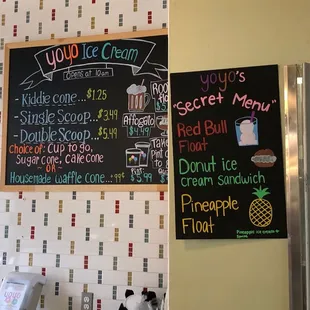 yoyo Ice Cream
Opens at 10am
-Kiddie cone...$1.25
-Single Scoop...$3.49
-Double Scoop...$5.49
Choice of: Cup to go,
Sugar cone, cake cone
- OR -
Housemade waffle cone...99¢
Affogato
$4.49
yoyo's
"Secret Menu"
Red Bull
Float
Donut ice
cream sandwich
Pineapple
Float